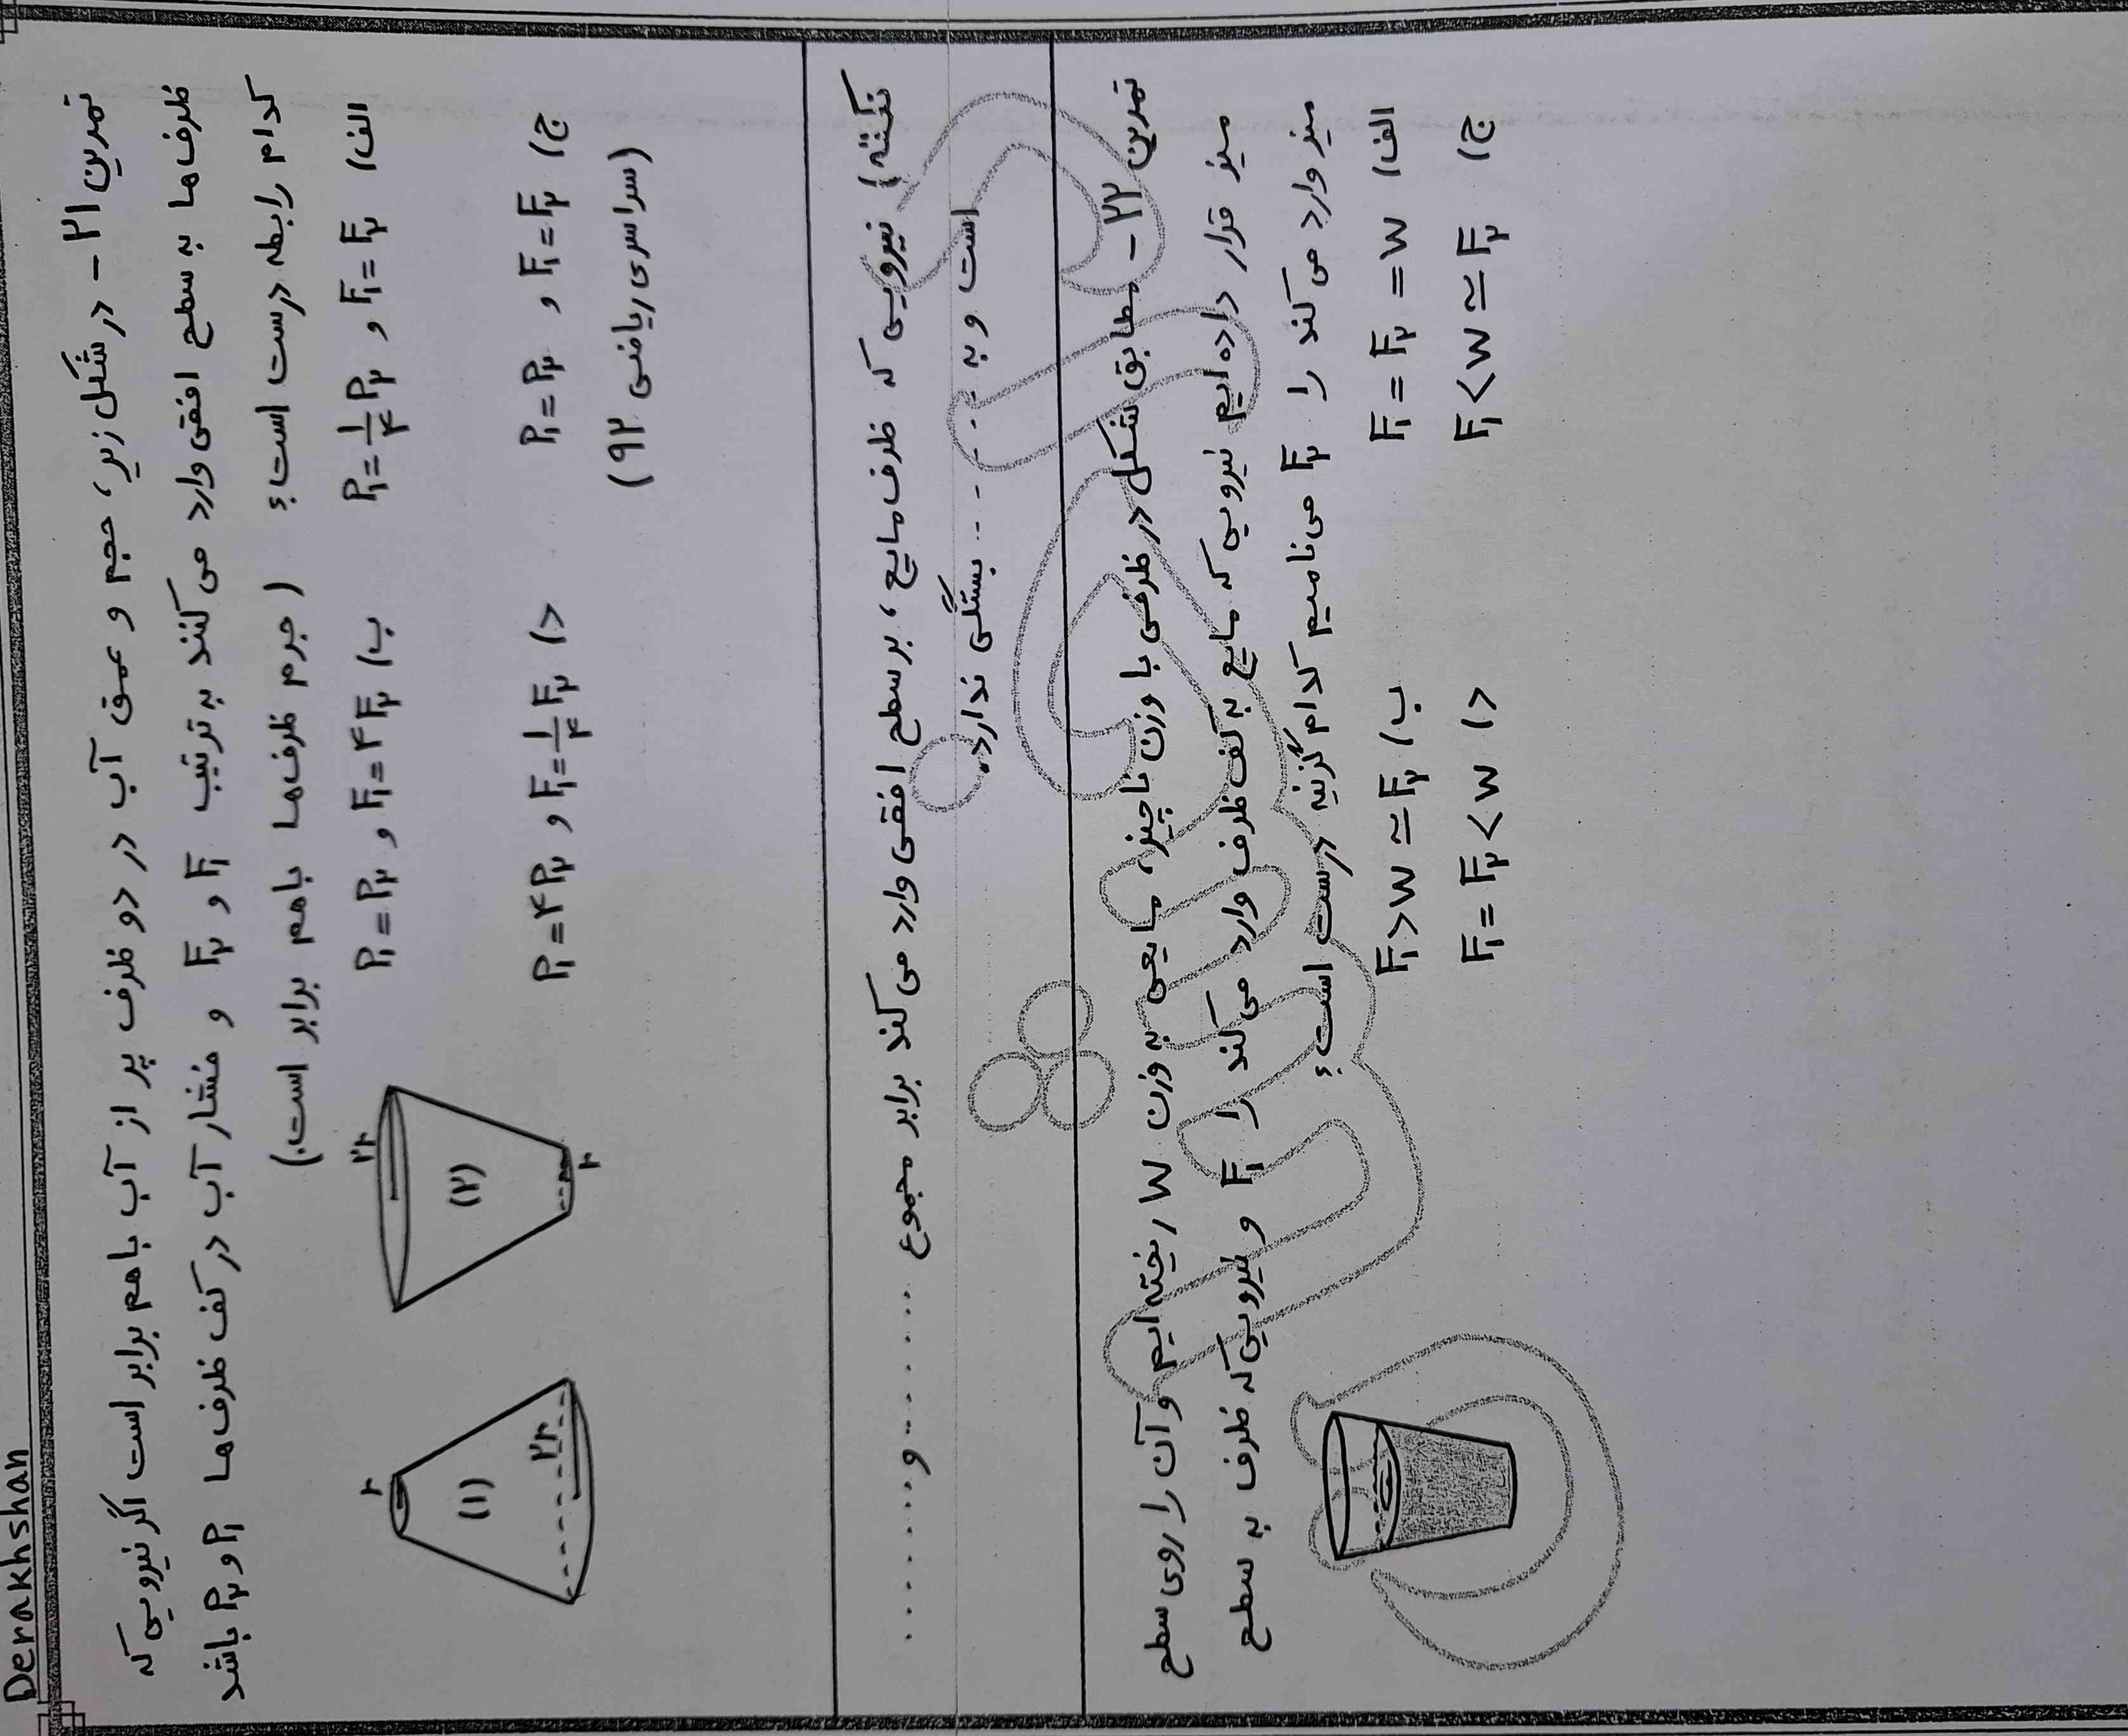 Derakhshan
تمرین ۲۱ - در شکل زیر، حجم و عمق آب در دو ظرف پر از آب باهم برابر است اگر نیرویی که
ظرف ها به سطح افقی وارد می کنند به ترتیب F₁ و F₂ و فشار آب در کف ظرف ها P₁ و P₂ باشد
کدام رابطه درست است؟ (جرم ظرف ها باهم برابر است.)
الف) F₁=F₂ و P₁=1/۴ P₂
ب) F₁=۴F₂ و P₁=P₂
ج) F₁=F₂ و P₁=P₂
د) F₁=1/۴ F₂ و P₁=۴P₂
(سراسری ریاضی ۹۲)
r
(۱)
۲r
۲r
(۲)
r
نکته) نیرویی که ظرف مایع، بر سطح افقی وارد می کند برابر مجموع ........ و ........
است و به ........ بستگی ندارد.
تمرین ۲۲ - مطابق شکل در ظرفی با وزن ناچیز، مایعی به وزن W ریخته ایم و آن را روی سطح
میز قرار داده ایم نیرویی که مایع به کف ظرف وارد می کند را F₁ و نیرویی که ظرف به سطح
میز وارد می کند را F₂ می نامیم کدام گزینه درست است؟
الف) F₁=F₂=W
ب) F₁>W≃F₂
ج) F₁<W≃F₂
د) F₁=F₂<W